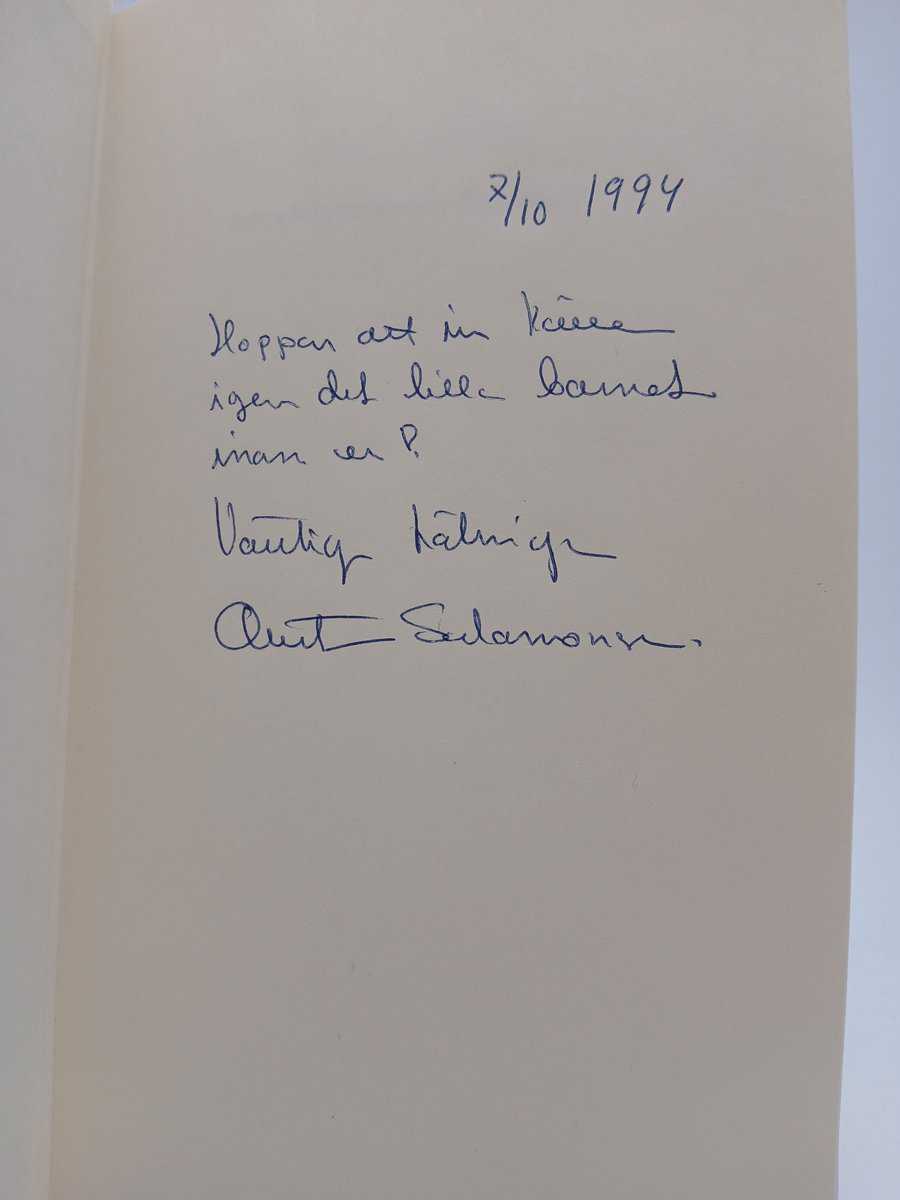 7/10 1994
Hoppas att ni känner
igen det lilla barnet
inom er?
Vänlig hälsning
Salamonsson.